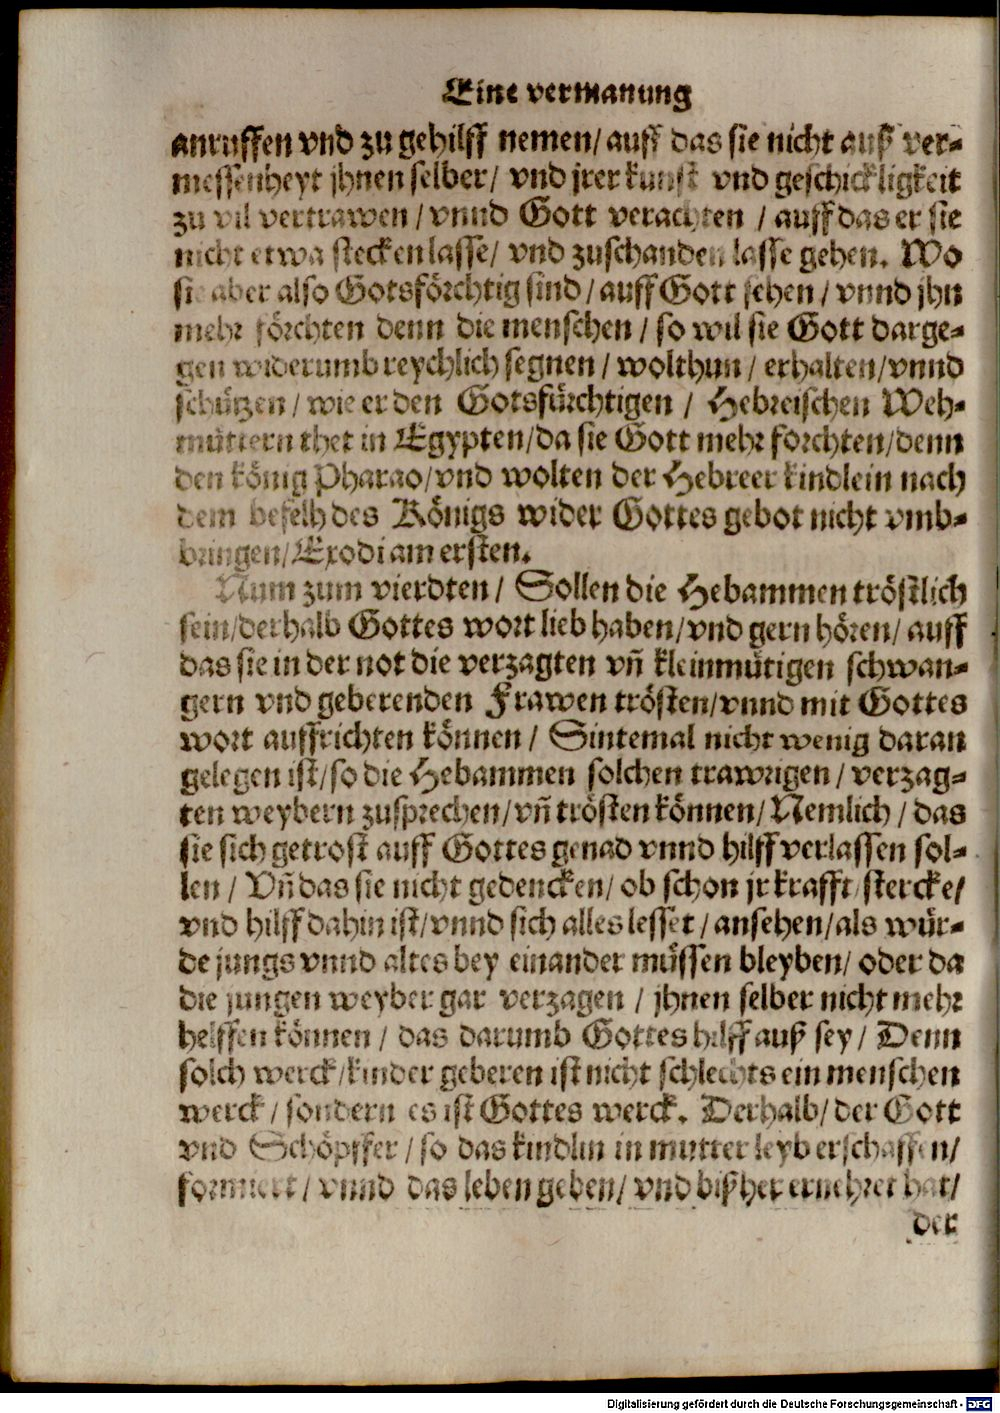 Eine vermanung
anruffen vnd zu gehilff nemen/ auff das sie nicht auß ver-
messenheyt jhnen selber/ vnd jrer kunst vnd geschickligkeit
zu vil vertrawen / vnnd Gott verachten / auff das er sie
nicht etwa stecken lasse/ vnd zuschanden lasse gehen. Wo
sie aber also Gotsförchtig sind / auff Gott sehen / vnnd jhn
mehr förchten denn die menschen / so wil sie Gott darge-
gen widerumb reychlich segnen / wolthun / erhalten/ vnnd
schützen / wie er den Gotsfürchtigen / Hebreischen Weh-
müttern thet in Egypten/ da sie Gott mehr forchten/ denn
den könig Pharao/ vnd wolten der Hebreer kindlein nach
dem befelh des Königs wider Gottes gebot nicht vmb-
bringen/ Exodi am ersten.
Num zum vierdten / Sollen die Hebammen tröstlich
sein/ derhalb Gottes wort lieb haben/ vnd gern hören/ auff
das sie in der not die verzagten vñ kleinmütigen schwan-
gern vnd geberenden Frawen trösten/ vnnd mit Gottes
wort auffrichten können / Sintemal nicht wenig daran
gelegen ist/ so die Hebammen solchen trawrigen / verzag-
ten weybern zusprechen/ vñ trösten können/ Nemlich / das
sie sich getrost auff Gottes genad vnnd hilff verlassen sol-
len / Vñ das sie nicht gedencken/ ob schon jr krafft/ stercke/
vnd hilff dahin ist/ vnnd sich alles lesset / ansehen/ als wür-
de jungs vnnd altes bey einander müssen bleyben/ oder da
die jungen weyber gar verzagen / jhnen selber nicht mehr
helffen können / das darumb Gottes hilff auß sey / Denn
solch werck/ kinder geberen ist nicht schlechts ein menschen
werck / sondern es ist Gottes werck. Derhalb/ der Gott
vnd Schöpffer / so das kindlin in mutter leyb erschaffen/
formiert / vnnd das leben geben/ vnd bißher ernehret hat/
der
Digitalisierung gefördert durch die Deutsche Forschungsgemeinschaft - DFG